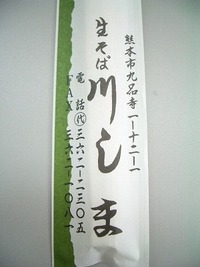 熊本市九品寺一ー十二ー一
生そば
川しま
電話(代)三六二ー二三〇五
FAX三六二ー一〇八一